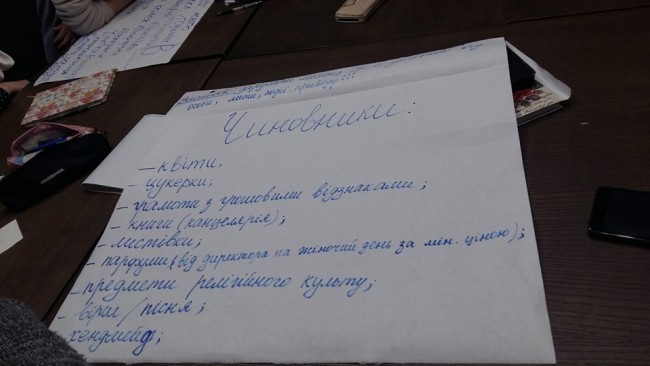 особи, дати, події, приводи!!!
Чиновники:
– квіти.
– цукерки;
– грамоти з грошовими відзнаками;
– книги (канцелярія);
– листівки;
– парфуми (від директора на жіночий день за мін. ціною);
– предмети релігійного культу;
– вірш / пісня;
хендмейд;